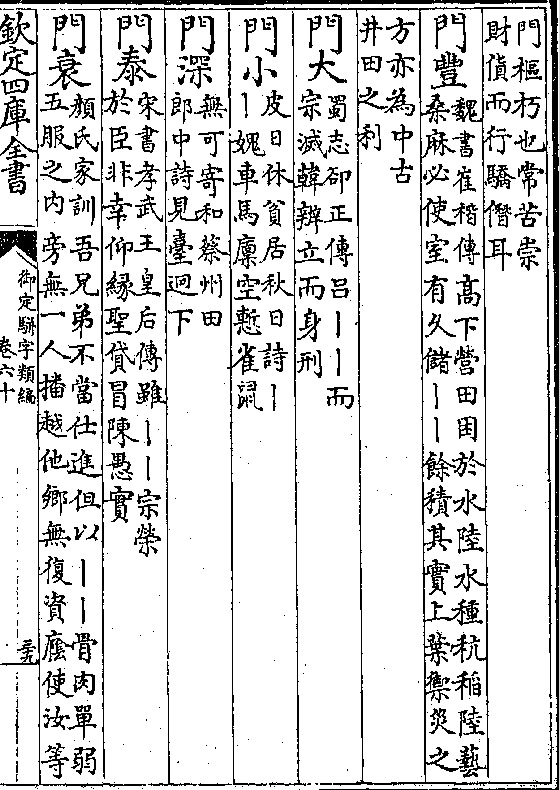 門樞朽也常苦崇
財貨而行驕僭耳
門豐
魏書崔楷傳高下營田因於水陸水種秔稻陸藝
桑麻必使室有久儲丨丨餘積其實上葉禦災之
方亦為中古
井田之利
門大
蜀志郤正傳呂丨丨而
宗滅韓辨立而身刑
門小
皮日休貧居秋日詩丨
丨媿車馬廩空慙雀鼠
門深
無可寄和蔡州田
郎中詩見臺迥下
門泰
宋書孝武王皇后傳雖丨丨宗榮
於臣非幸仰緣聖貸冒陳愚實
門衰
顔氏家訓吾兄弟不當仕進但以丨丨骨肉單弱
五服之内旁無一人播越他鄉無復資廕使汝等
欽定四庫全書
御定駢字類編
卷六十
三九